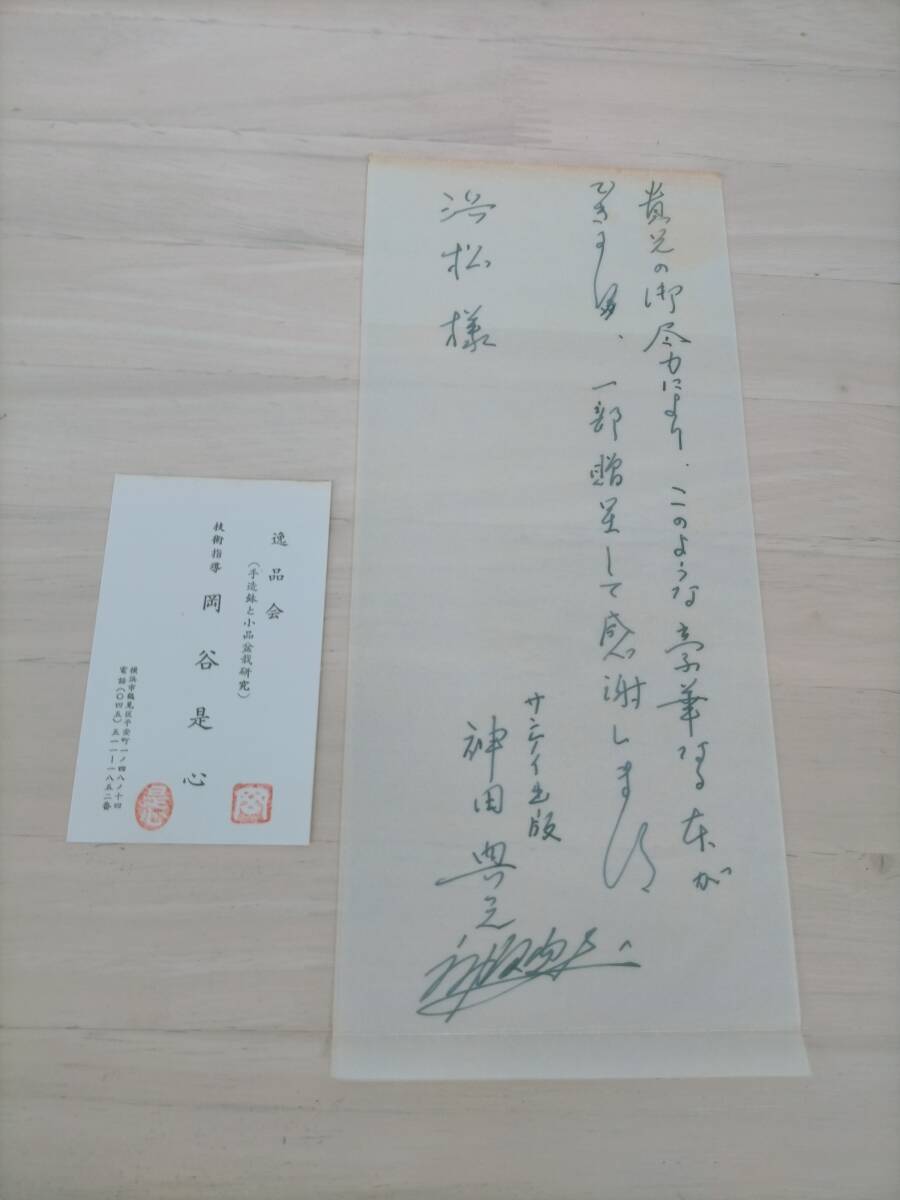 貴兄の御尽力により、このような豪華なる本が
できました、一部贈呈して感謝します
サンケイ出版
神田
浜松様
逸品会
(手造鉢と小品盆栽研究)
技術指導 岡谷是心
横浜市鶴見区平安町一ノ四八ノ十四
電話(〇四五)五一一―一八五二番
是心